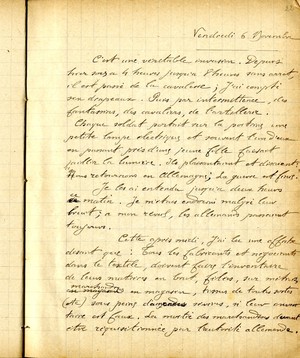 Vendredi 6 Novembre
C'est une véritable invasion. Depuis
hier soir 4 heures jusqu'à 8 heures sans arrêt,
il est passé de la cavalerie, j'ai compté
drapeaux. Puis par intermittence, des
fantassins, des cavaliers, de l'artillerie.
Chaque soldat portait sur la poitrine une
petite lampe électrique et souvent l'un d'eux
en passant près d'une jeune fille faisait
jaillir la lumière. Ils plaisantaient et disaient
Nous retournons en Allemagne; La guerre est finie.
Je les ai entendu jusqu'à deux heures
matin. Je m'endormis malgré leur
bruit; à mon réveil, les allemands passaient
toujours.
Cette après midi, j'ai lu une affiche
disant que : Tous les fabricants et négociants
dans le textile, doivent faire l'inventaire
de leurs matières en
marchandises
en magasin, de toutes sortes
sous peine sévères, si leur inven
taire est faux. La moitié des marchandises devant
être réquisitionnée par l'autorité allemande.